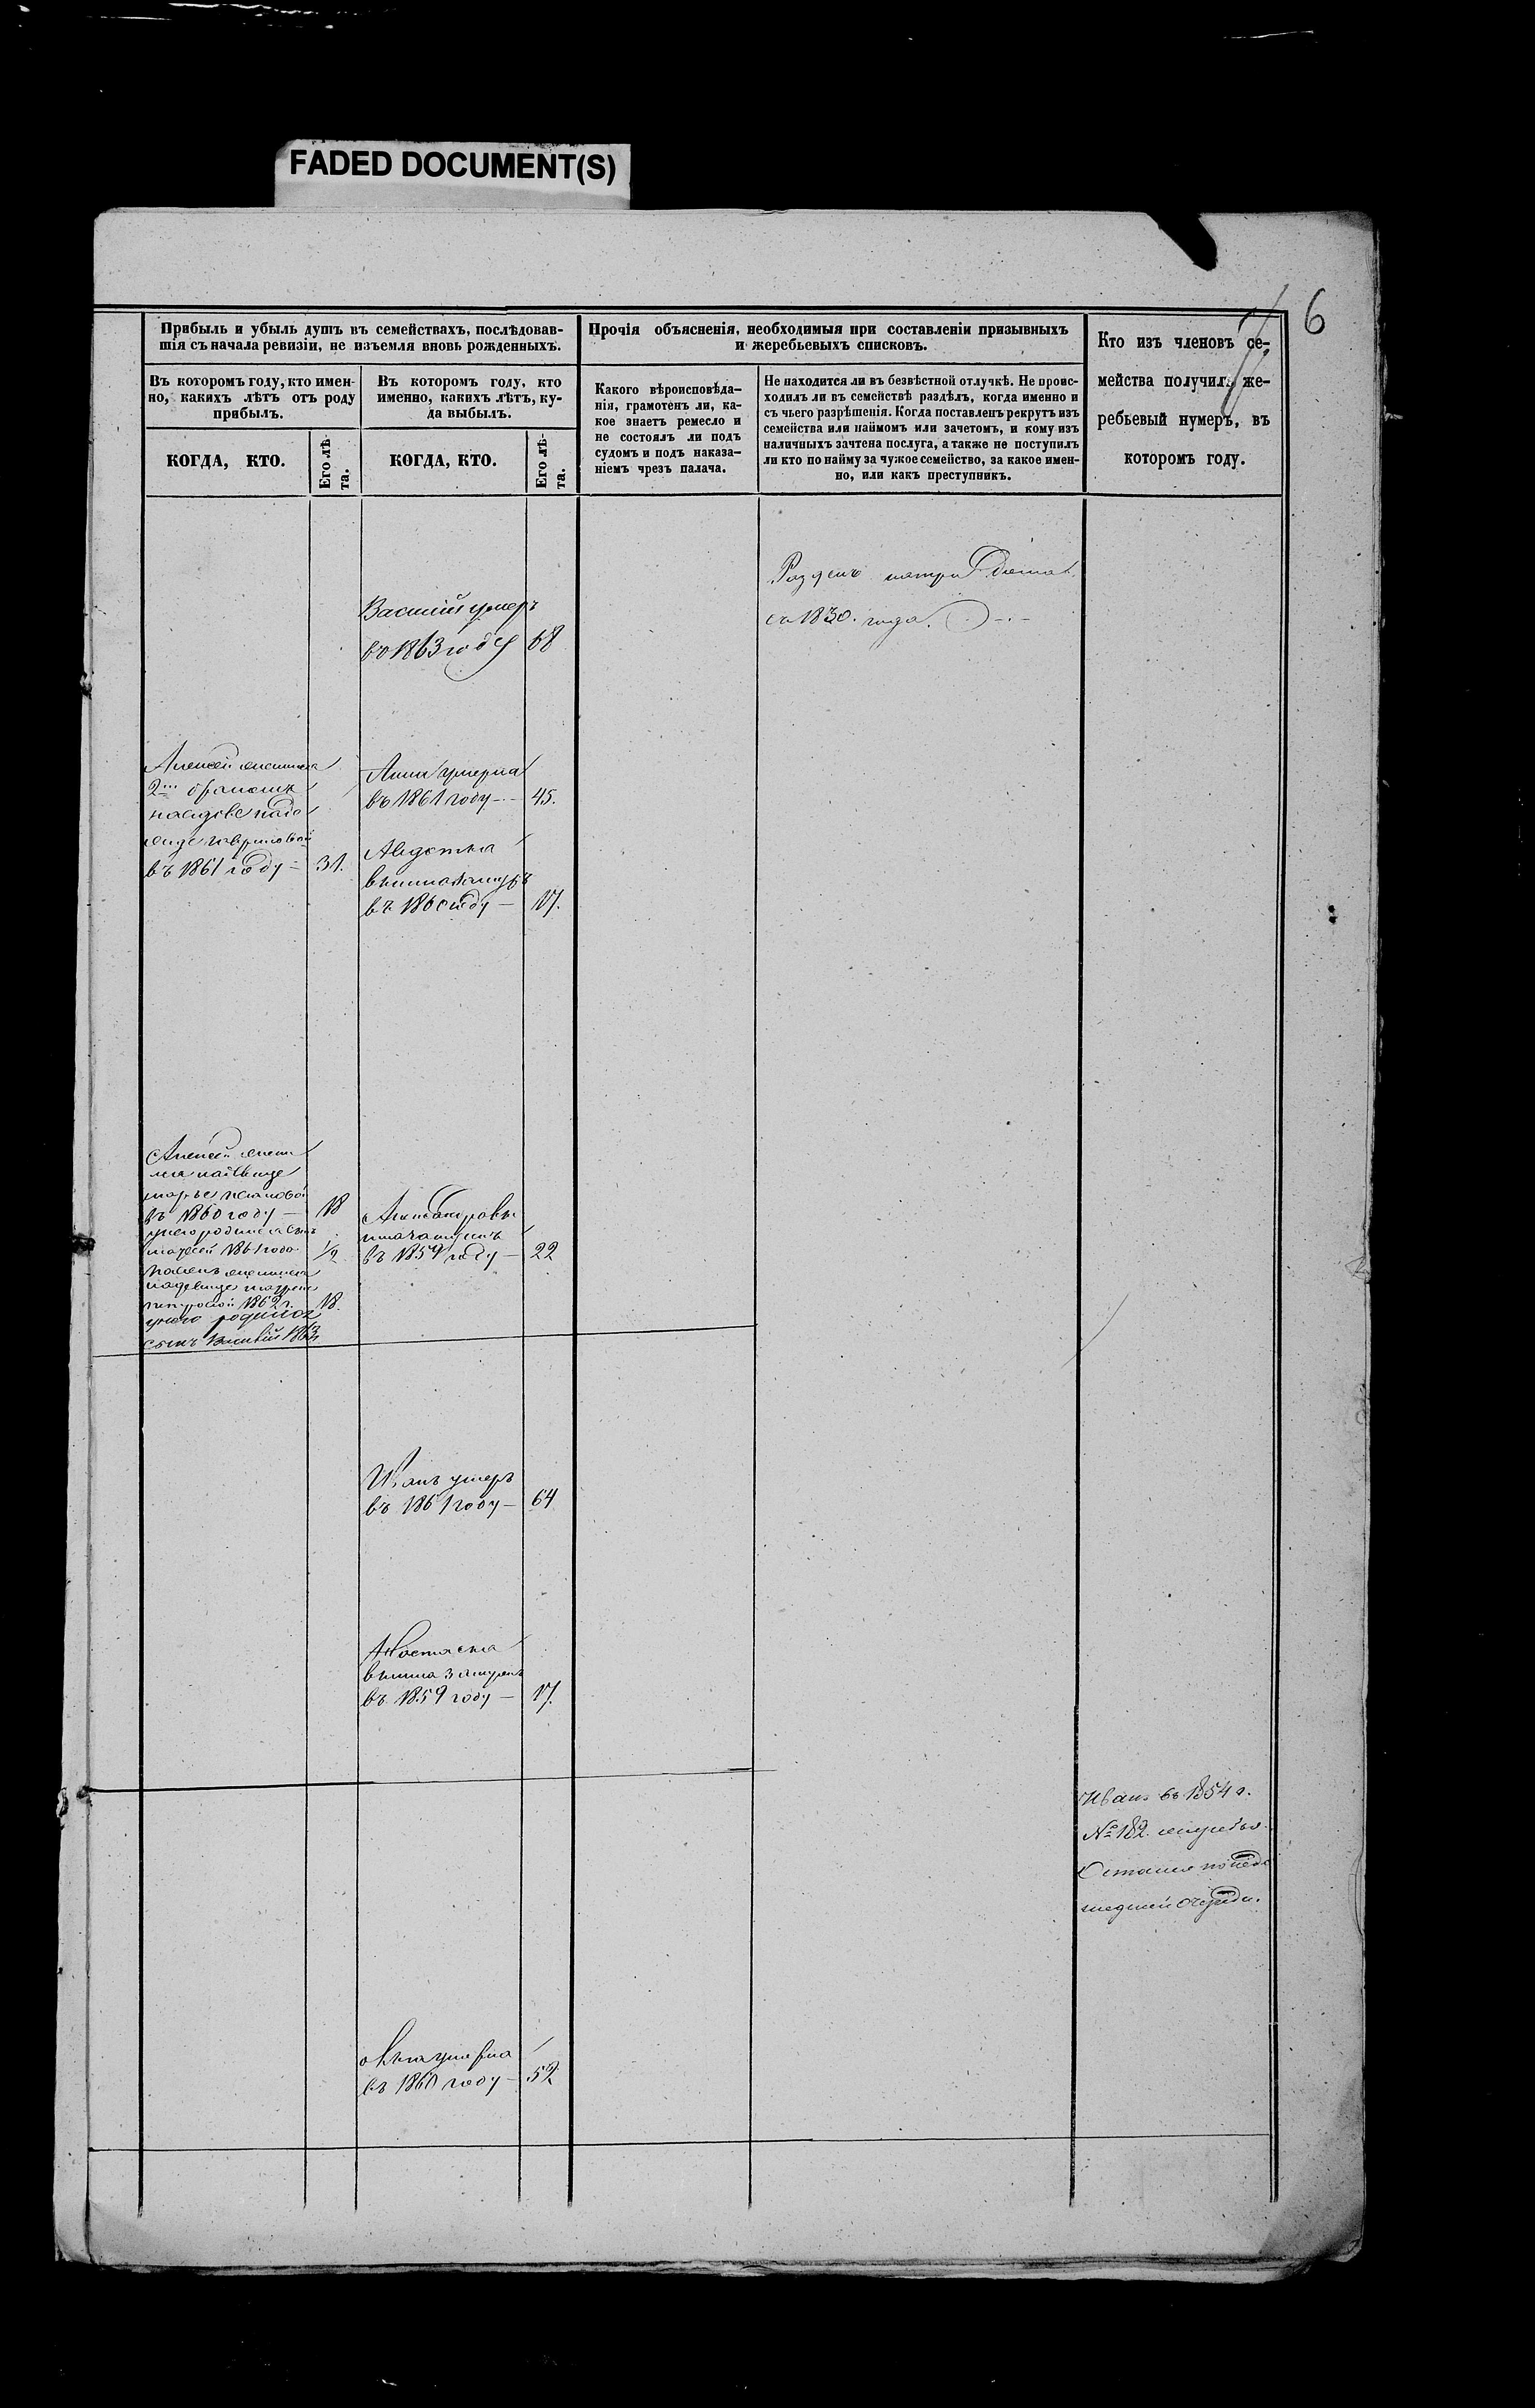 FADED DOCUMENT(S)
6
Прибыль и убыль душъ въ семействахъ, послѣдовав-
шія съ начала ревизіи, не изъемля вновь рожденныхъ.
Прочія объясненія, необходимыя при составленіи призывныхъ
и жеребьевыхъ списковъ.
Кто изъ членовъ се-
мейства получилъ же-
ребьевый нумеръ, въ
которомъ году.
Въ которомъ году, кто имен-
но, какихъ лѣтъ отъ роду
прибылъ.
Въ которомъ году, кто
именно, какихъ лѣтъ, ку-
да выбылъ.
Какого вѣроисповѣда-
нія, грамотенъ ли, ка-
кое знаетъ ремесло и
не состоялъ ли подъ
судомъ и подъ наказа-
ніемъ чрезъ палача.
Не находится ли въ безвѣстной отлучкѣ. Не проис-
ходилъ ли въ семействѣ раздѣлъ, когда именно и
съ чьего разрѣшенія. Когда поставленъ рекрутъ изъ
семейства или наймомъ или зачетомъ, и кому изъ
наличныхъ зачтена послуга, а также не поступилъ
ли кто по найму за чужое семейство, за какое имен-
но, или какъ преступникъ.
КОГДА, КТО.
Его лѣ-
та.
КОГДА, КТО.
Его лѣ-
та.
съ 1830. года.
Василій умеръ
въ 1863 году 68
Алексей женился
2мъ бракомъ
въ 1861 году — 31.
Анна умерла
въ 1861 году — 45.
Авдотья
вышла замужъ
въ 1860 году — 17.
Алексей жени
въ 1860 году — 18
у него родился сынъ
1861 года 1/2
1862 г. 18.
у него родился
сынъ Василій 1863
Александровы
въ 1859 году — 22
Иванъ умеръ
въ 1861 году — 64
Настасья
вышла замужъ
въ 1859 году — 17.
Иванъ въ 1854 г.
№ 182.
Остался по недо
шедшей очереди.
умерла
въ 1860 году — 52